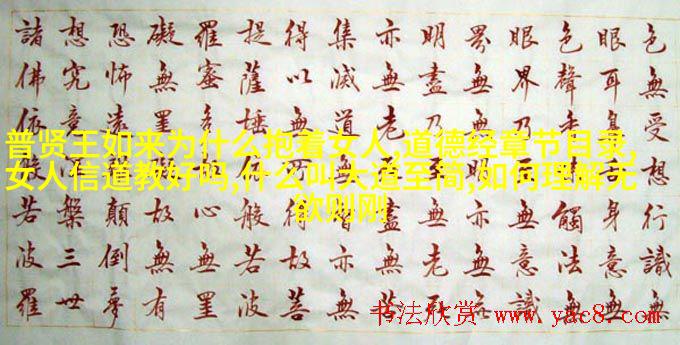 色無受想行識無
眼耳身意無
色聲香觸法無
眼界乃無意識
界無無明亦無無
明盡乃無老死
亦無老盡無苦
集滅道智亦無
得以無得故菩
提薩埵般若波
羅蜜多心無罣
礙無罣故無有
恐怖遠顛倒夢
想究竟槃三世
諸佛依般若波羅
普贤王如来为什么抱着女人,道德经章节目录,
女人信道教好吗,什么叫大道至简,如何理解无
欲则刚
书法欣赏 www.yac8.com